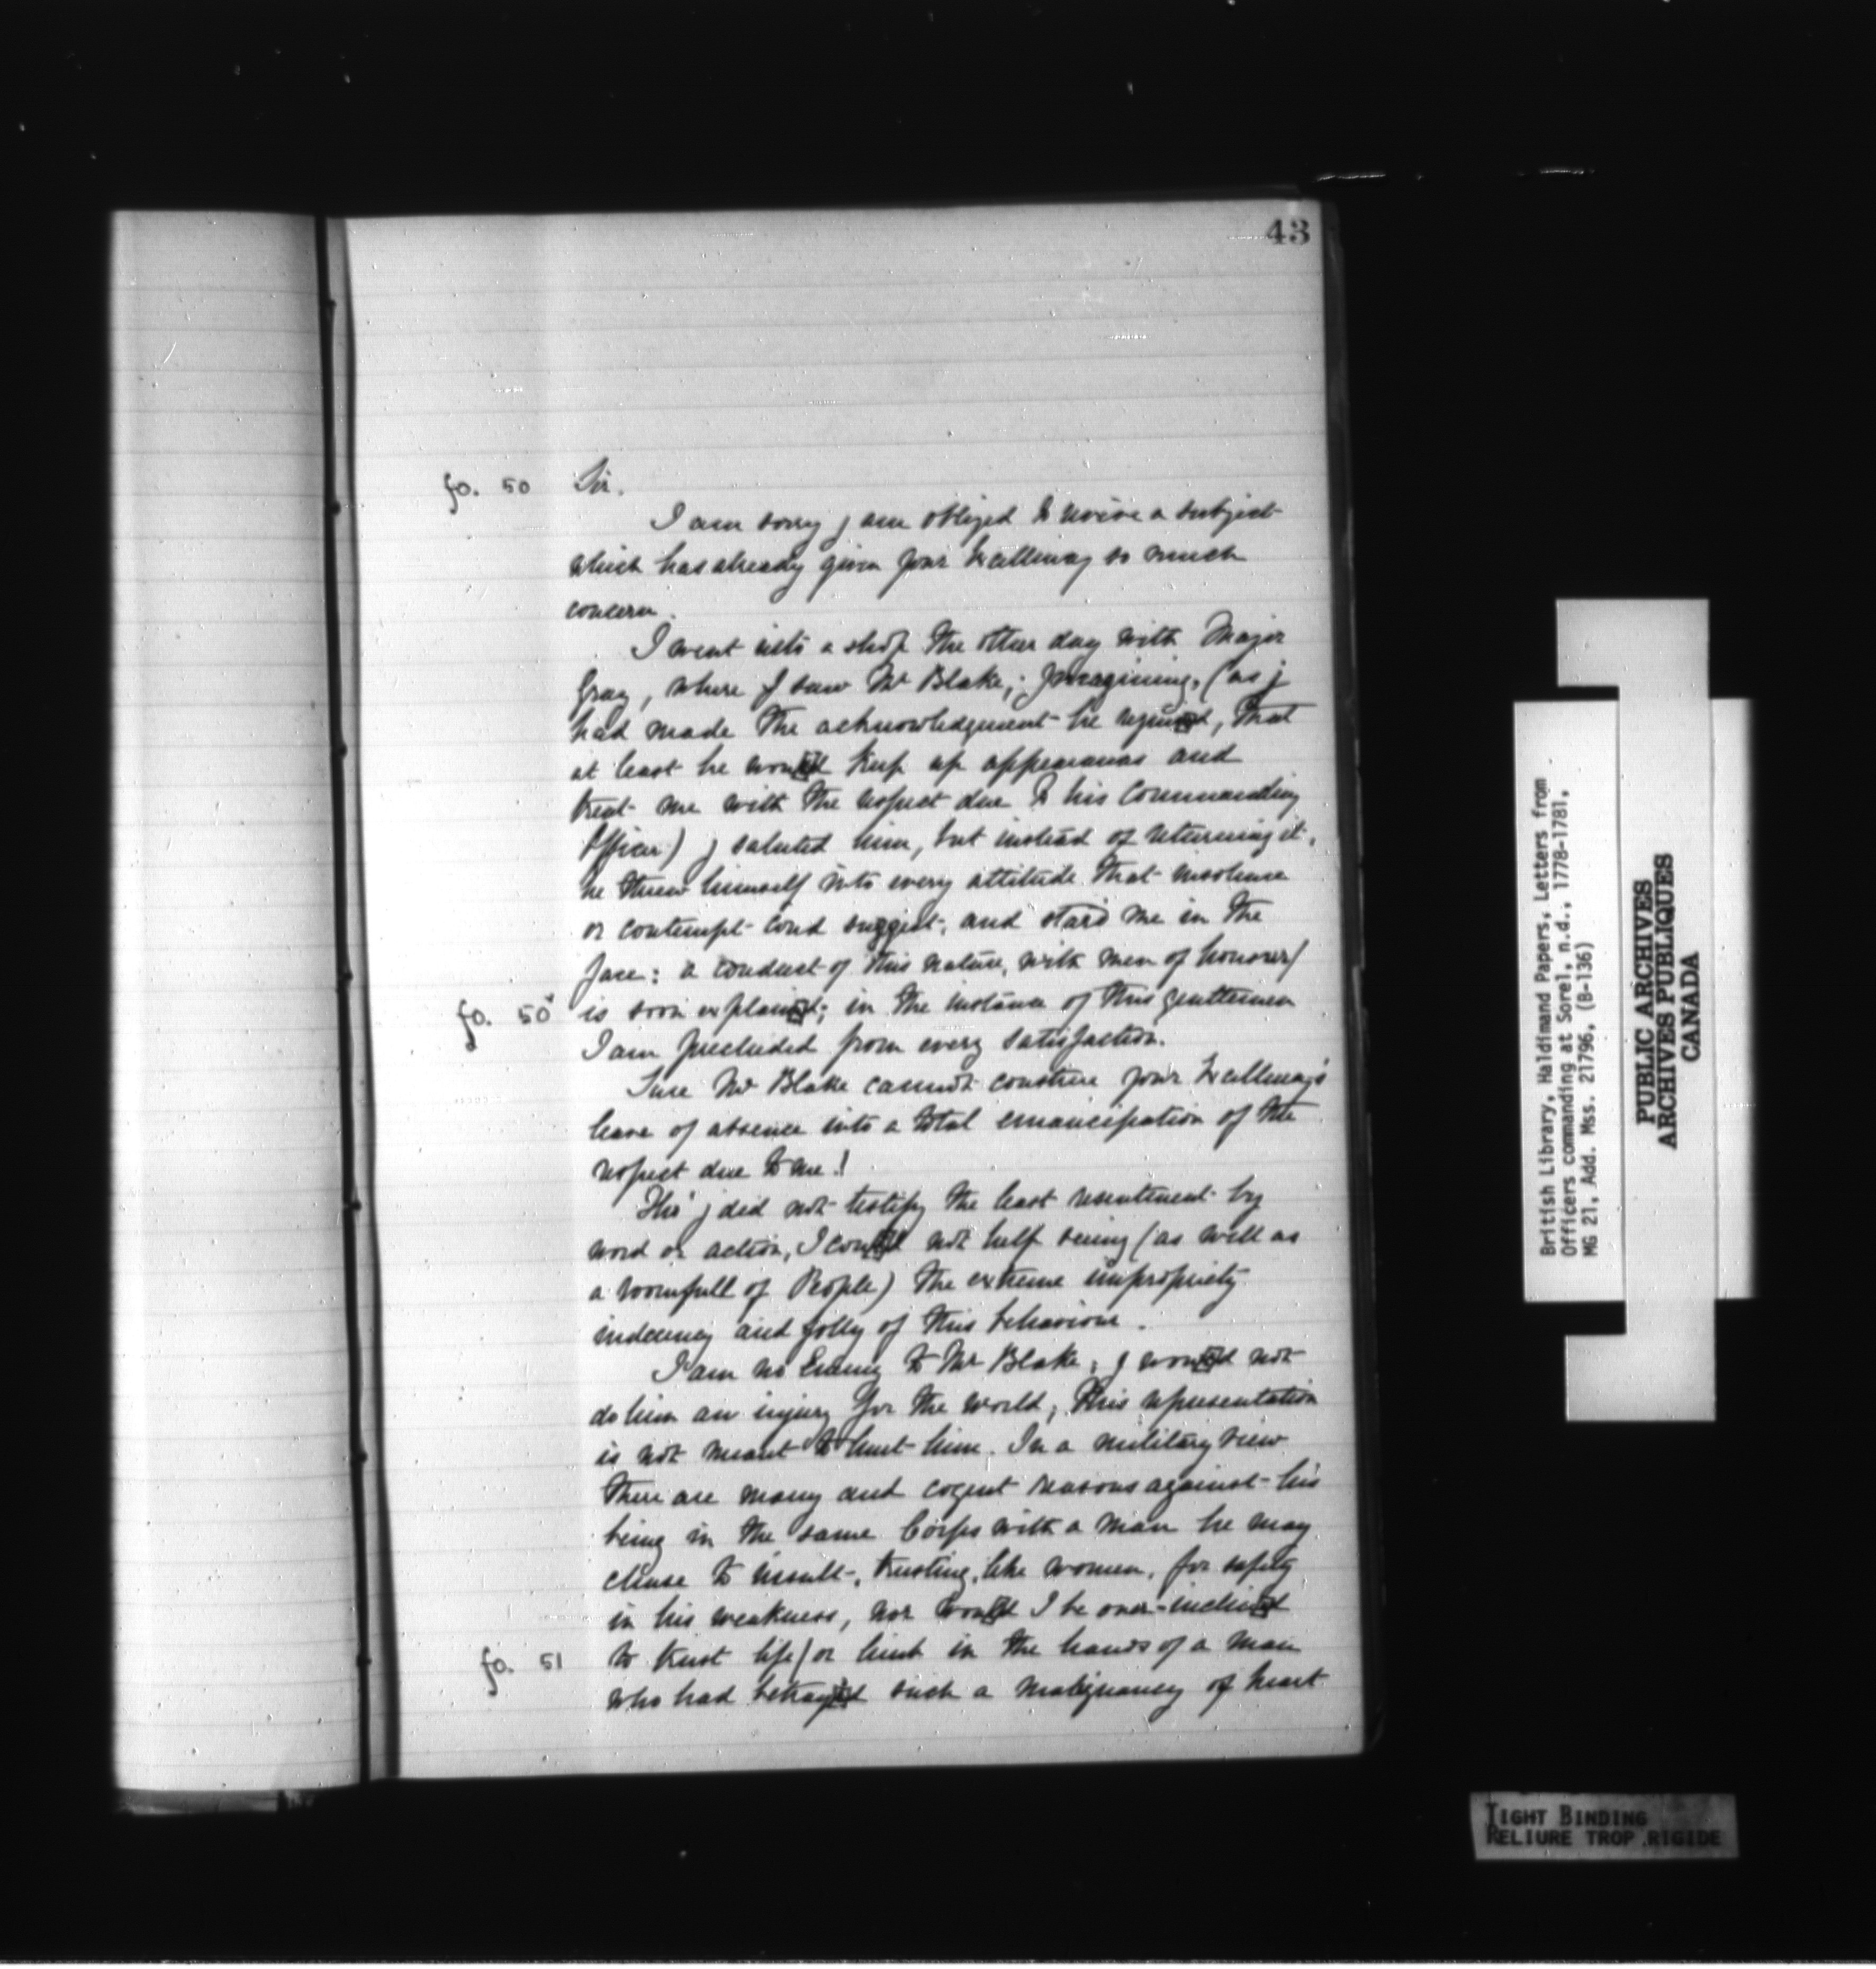 43
fo. 50 Sir.
I am sorry j am obliged to revive a subject
which has already given your Excellency so much
concern.
I went into a shop the other day with Major
Gray, where I saw Mr Blake; Imagining, (as j
had made the acknowledgement he requir'd, that
at least he wou'd keep up appearances and
treat me with the respect due to his Commanding
Officer) j saluted him, but instead of returning it,
he threw himself into every attitude that insolence
or contempt coud suggest, and star'd me in the
face: a conduct of this nature, with men of honour/
fo. 50v is soon explain'd; in the instance of this gentlemen
I am precluded from every satisfaction.
Sure Mr Blake cannot construe your Excellency's
leave of absence into a total emancipation of the
respect due to me!
Tho' j did not testify the least resentment by
word or action, I cou'd not help seeing (as well as
a roomfull of People) the extreme impropriety
indecency and folly of this behaviour.
I am no Enemy to Mr Blake; I wou'd not
do him an injury for the world; This representation
is not meant to hurt him. In a military view
there are many and cogent reasons against his
being in the same Corps with a man he may
chuse to insult, trusting, like women, for safety
in his weakness, nor wou'd I be over-inclin'd
fo. 51 to trust life/or limb in the hands of a man
who had betray'd such a malignancy of heart
British Library, Haldimand Papers, Letters from
Officers commanding at Sorel, n.d., 1778-1781,
MG 21, Add. Mss. 21796, (B-136)
PUBLIC ARCHIVES
ARCHIVES PUBLIQUES
CANADA
TIGHT BINDING
RELIURE TROP RIGIDE